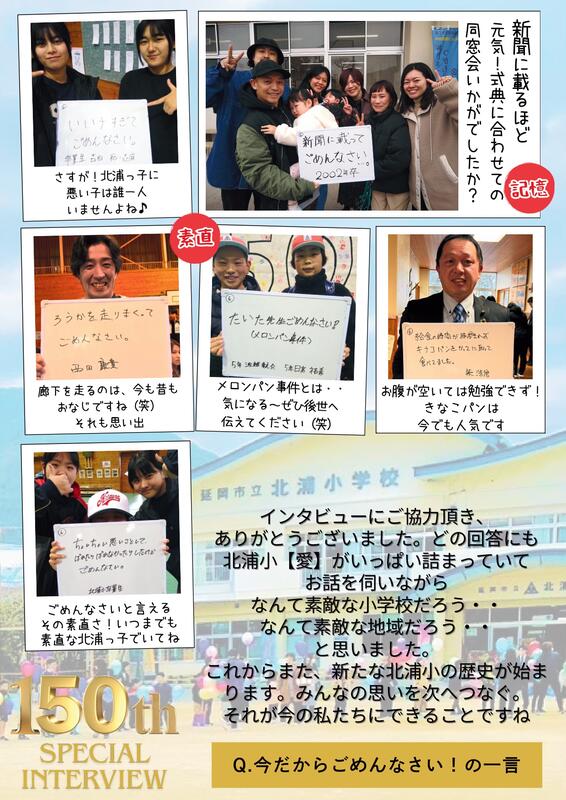 いい子すぎて
ごめんなさい。
さすが！北浦っ子に
悪い子は誰一人
いませんよね♪
新聞に載って
ごめんなさい…。
2002年卒
新聞に載るほど
元気！式典に合わせての
同窓会いかがでしたか？
記憶
素直
ろうかを走りまくって
ごめんなさい。
廊下を走るのは、今も昔も
おなじですね（笑）
それも思い出
たいた先生ごめんなさい!
(メロンパン事件)
メロンパン事件とは・・
気になる～ぜひ後世へ
伝えてください（笑）
キナコパンを
食べてました。
お腹が空いては勉強できず！
きなこパンは
今でも人気です
ちょいちょい悪いことして
ごめんなさい。
ごめんなさいと言える
その素直さ！いつまでも
素直な北浦っ子でいてね
延岡市立 北浦小学校
インタビューにご協力頂き、
ありがとうございました。どの回答にも
北浦小【愛】がいっぱい詰まっていて
お話を伺いながら
なんて素敵な小学校だろう・・
なんて素敵な地域だろう・・
と思いました。
これからまた、新たな北浦小の歴史が始ま
ります。みんなの思いを次へつなぐ。
それが今の私たちにできることですね
150th
SPECIAL
INTERVIEW
Q.今だからごめんなさい！の一言